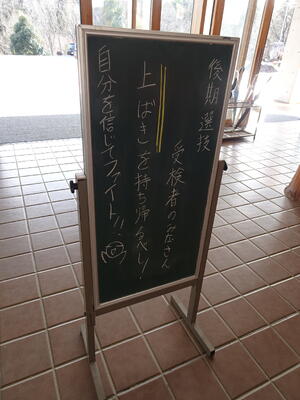 後期選抜
受検者のみなさん
上ばきを持ち帰るべし!
自分を信じてファイト!!